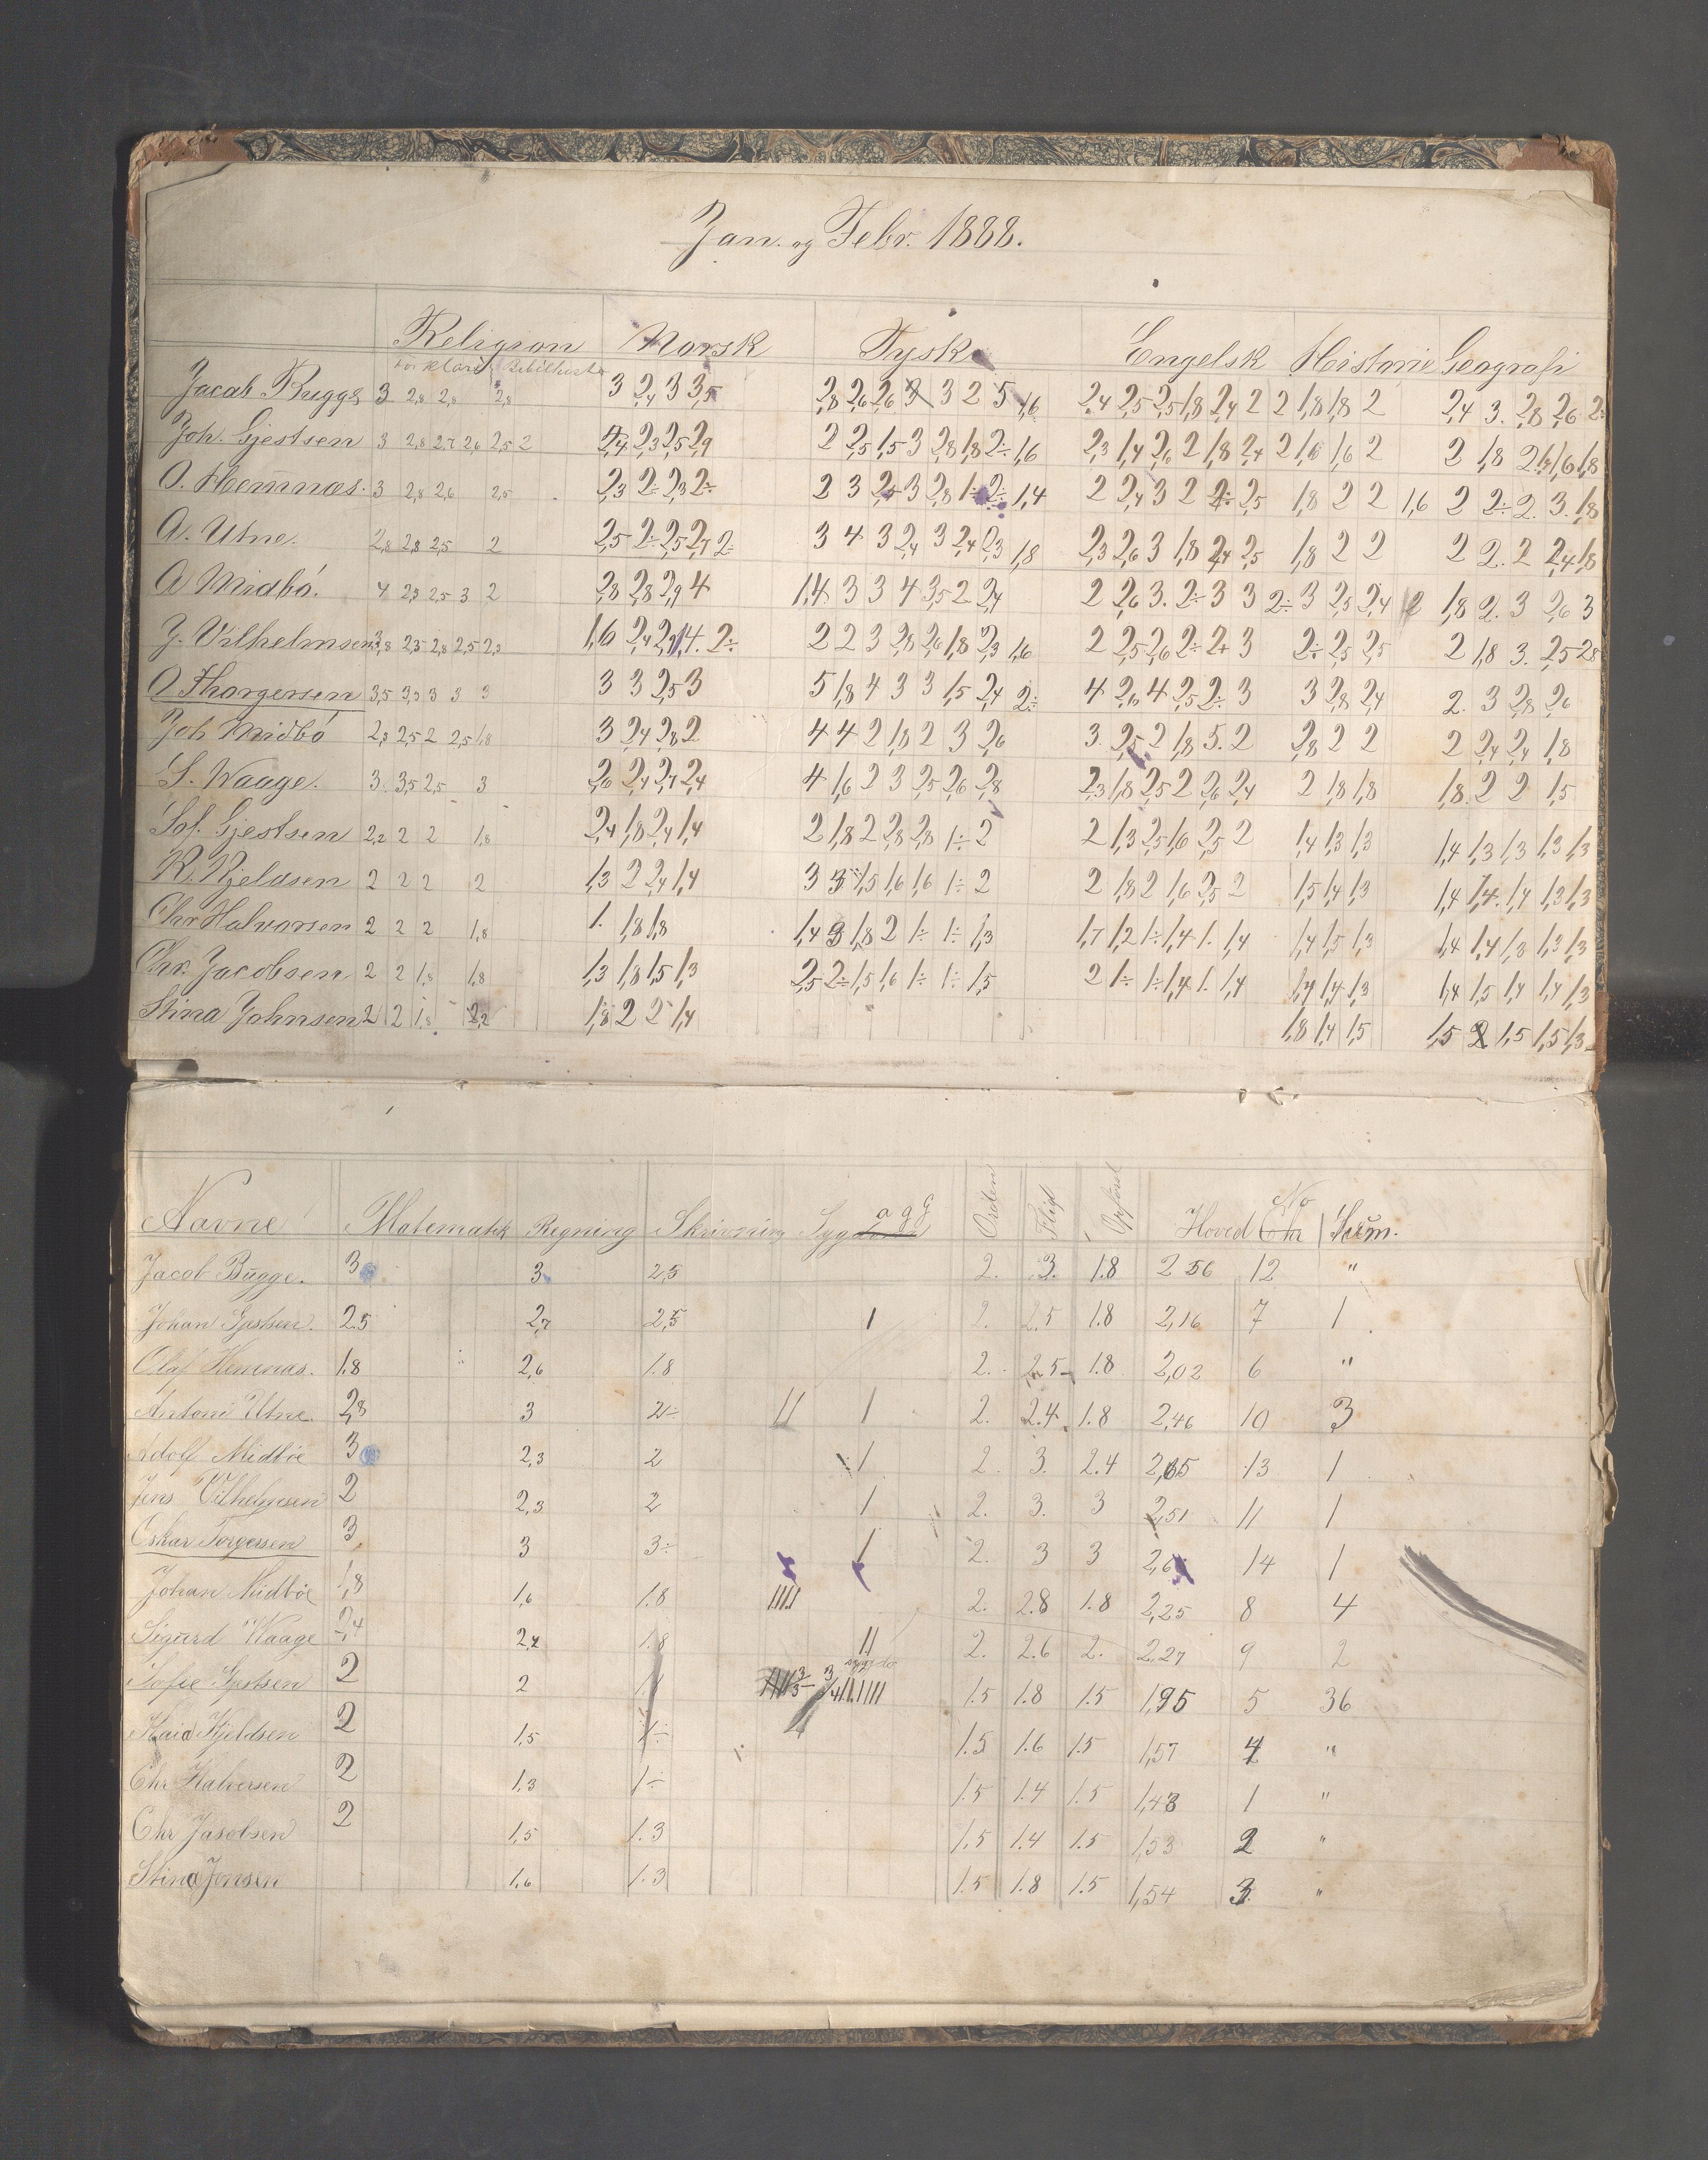 Jan. og Febr. 1888.
Religion Norsk Tysk Engelsk Historie Geografi
Forklar. Bibelhist.
Jacob Bugge 3 2,8 2,8 2,8 3 2,4 3 3,5 2,8 2,6 2,6 3 3 2 5 1,6 2,4 2,5 2,5 1,8 2,4 2 2 1,8 1,8 2 2,4 3. 2,8 2,6 2÷
Joh. Gjestsen 3 2,8 2,7 2,6 2,5 2 2,4 2,3 2,5 2,9 2 2,5 1,5 3 2,8 1,8 2÷ 1,6 2,3 1,4 2,6 2 1,8 2,4 2 1,6 1,6 2 2 1,8 2,4 1,6 1,8
O. Hemnæs. 3 2,8 2,6 2,5 2,3 2÷ 2,3 2÷ 2 3 2,5 3 2,8 1÷ 2÷ 1,4 2 2,4 3 2 2÷ 2,5 1,8 2 2 1,6 2 2÷ 2. 3. 1,8
A. Utne. 2,8 2,8 2,5 2 2,5 2÷ 2,5 2,7 2÷ 3 4 3 2,4 3 2,4 2,3 1,8 2,3 2,6 3 1,8 2,4 2,5 1,8 2 2 2 2. 2 2,4 1,8
A Midbö. 4 2,3 2,5 3 2 2,8 2,8 2,9 4 1,4 3 3 4 3,5 2 2,4 2 2,6 3. 2÷ 3 3 2÷ 3 2,5 2,4 2 1,8 2. 3 2,6 3
J. Vilhelmsen 3,8 2,5 2,8 2,5 2,3 1,6 2,4 2,2 1,4. 2÷ 2 2 3 2,8 2,6 1,8 2,3 1,6 2 2,5 2,6 2÷ 2+ 3 2÷ 2,5 2,5 2 1,8 3. 2,5 2,8
O Thorgersen 3,5 3,3 3 3 3 3 3 2,5 3 5 1,8 4 3 3 1,5 2,4 2÷ 4 2,6 4 2,5 2÷ 3 3 2,8 2,4 2. 3 2,8 2,6
Joh Midbö 2,3 2,5 2 2,5 1,8 3 2,4 2,8 2 4 4 2 1,8 2 3 2,6 3. 2,5 2 1,8 5. 2 2,8 2 2 2 2,4 2,4 1,8
S. Waage. 3 3,5 2,5 3 2,6 2,4 2,7 2,4 4 1,6 2 3 2,5 2,6 2,8 2,3 1,8 2,5 2 2,6 2,4 2 1,8 1,8 1,8 2 2 1,5
Sof. Gjestsen 2,2 2 2 1,8 2,4 1,8 2,4 1,4 2 1,8 2 2,8 2,8 1÷ 2 2 1,3 2,5 1,6 2,5 2 1,4 1,3 1,3 1,4 1,3 1,3 1,3 1,3
K. Kjeldsen 2 2 2 2 1,3 2 2,4 1,4 3 3 1,5 1,6 1,6 1÷ 2 2 1,8 2 1,6 2,5 2 1,5 1,4 1,3 1,4 1,4. 1,4 1,3 1,3
Chr Halvorsen 2 2 2 1,8 1. 1,8 1,8 1,4 3 1,8 2 1÷ 1÷ 1,3 1,7 1,2 1÷ 1,4 1. 1,4 1,4 1,5 1,3 1,4 1,4 1,3 1,3 1,3
Chr. Jacobsen 2 2 1,8 1,8 1,3 1,8 1,5 1,3 2,5 2÷ 1,5 1,6 1÷ 1÷ 1,5 2 1÷ 1÷ 1,4 1. 1,4 1,4 1,4 1,3 1,4 1,5 1,4 1,4 1,3
Stina Johnsen 2 2 1,8 2,2 1,8 2 2 1,4 1,8 1,4 1,5 1,5 2 1,5 1,5 1,3
Navne Matematik Regning Skrivning Orden Flid Opförsel Hoved No Chr Sum.
Jacob Bugge. 3 3. 2,5 2. 3. 1.8 2 56 12 "
Johan Gjestsen. 2.5 2,7 2,5 1 2. 2.5 1.8 2,16 7 1
Olaf Hemnæs. 1.8 2,6 1.8 2. 2.5 1.8 2,02 6 "
Antoni Utne. 2,8 3 2÷ 11 1 2. 2.4 1.8 2,46 10 3
Adolf Midböe 3 2,3 2 1 2. 3. 2.4 2,65 13 1
Jens Vilhelmsen 2 2,3 2 1 2. 3. 3 2,51 11 1
Oskar Torgersen 3 3 3÷ 1 2. 3 3 2,6 14 1
Johan Midböe 1,8 1,6 1.8 1111 2. 2.8 1.8 2,25 8 4
Sigurd Waage 2,4 2,2 1.8 11 2. 2.6 2. 2,27 9 2
Sofie Gjestsen 2 2 1.5 1.8 1.5 1,95 5 36
Kaia Kjeldsen 2 1,5 1÷ 1.5 1.6 1.5 1,57 4 "
Chr Halversen 2 1,3 1÷ 1.5 1.4 1.5 1,43 1 "
Chr Jacobsen 2 1,5 1.3 1.5 1.4 1.5 1,53 2 "
Stina Jonsen 1,6 1.3 1.5 1.8 1.5 1,54 3. "